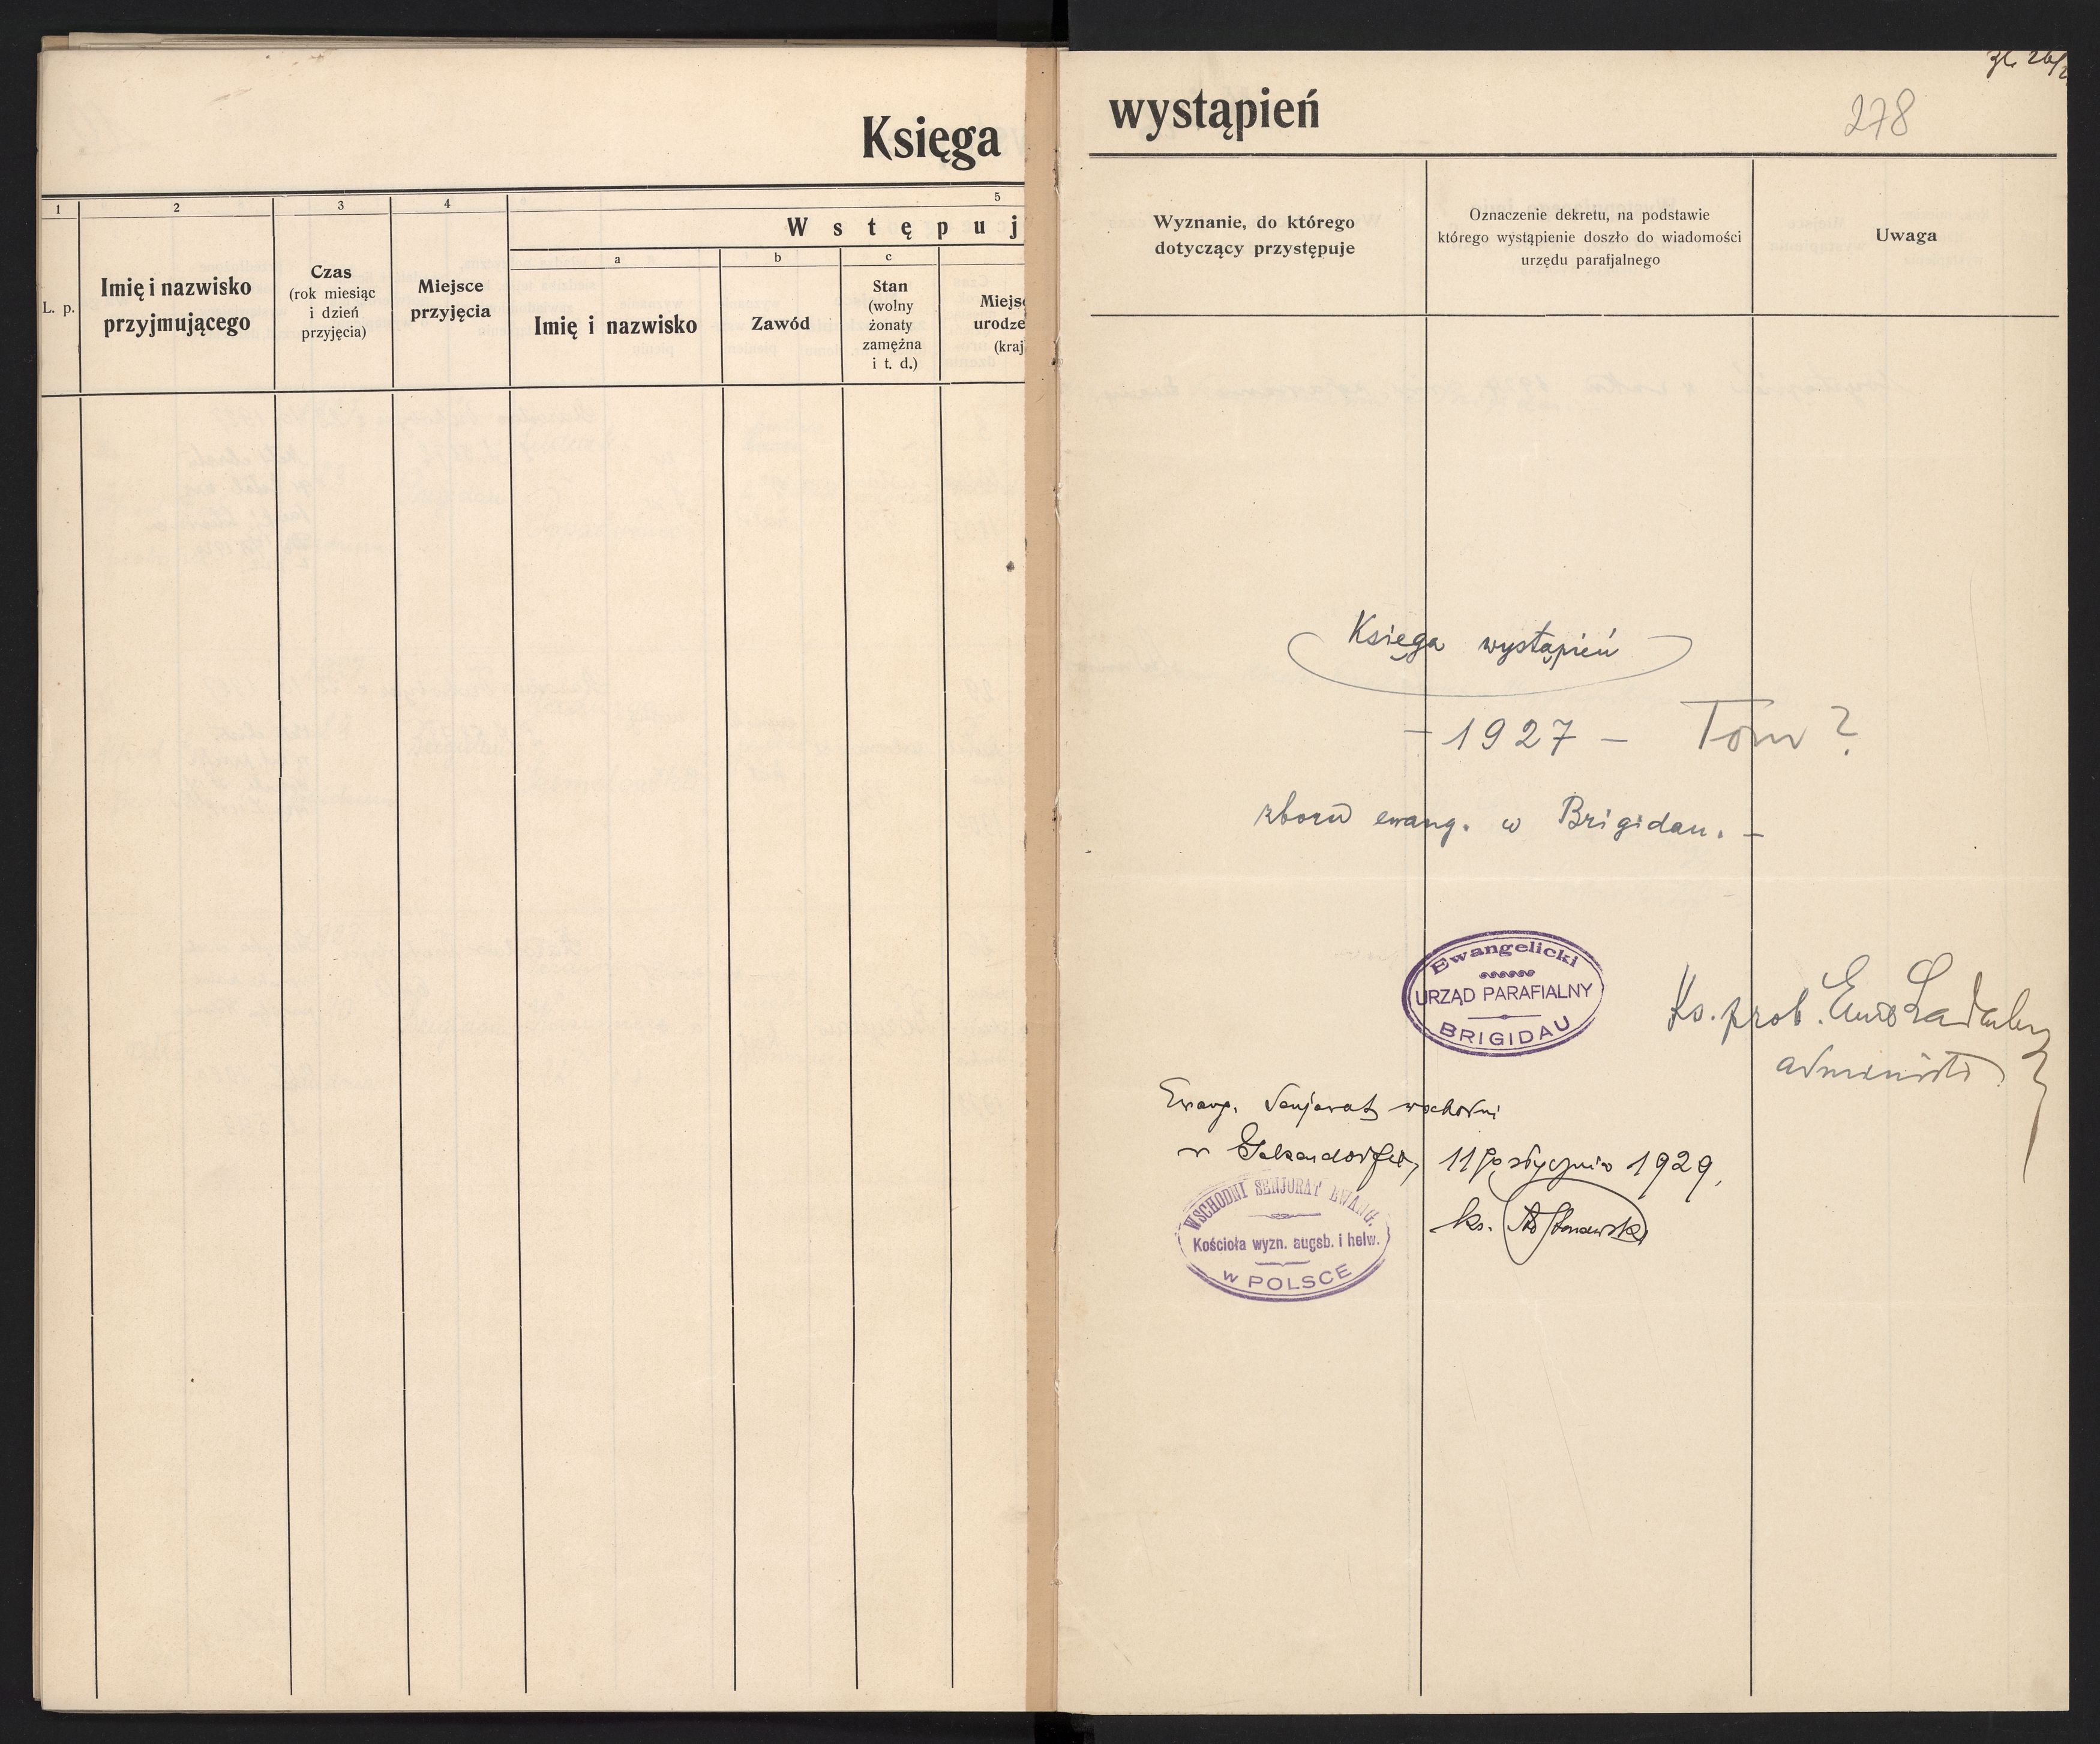 Księga
1 2 3 4 5
W s t ę p u j
a b c
L. p.
Imię i nazwisko
przyjmującego
Czas
(rok miesiąc
i dzień
przyjęcia)
Miejsce
przyjęcia
Imię i nazwisko
Zawód
Stan
(wolny
żonaty
zamężna
i t. d.)
Miejsc
urodze
(kraj
wystąpień
278
Wyznanie, do którego
dotyczący przystępuje
Oznaczenie dekretu, na podstawie
którego wystąpienie doszło do wiadomości
urzędu parafjalnego
Uwaga
Księga wystąpień
- 1927 - Tom ?
zboru ewang. w Brigidau. -
Ewangelicki
URZĄD PARAFIALNY
BRIGIDAU
Ks. prob.
Ewang. Senjorat wschodni
w 11go stycznia 1929,
ks.
WSCHODNI SENJORAT EWANG.
Kościoła wyzn. augsb. i helw.
w POLSCE